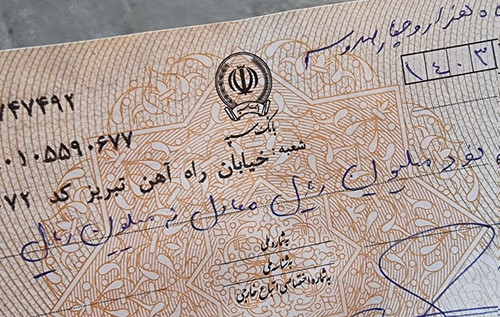 هزار و چهارصد و س
۱۴۰۳
۷۴۷۴۹۲
بانک سپه
۰۱۰۵۵۹۰۶۷۷
شعبه خیابان راه آهن تبریز کد ۷۲
نود میلیون ریال معادل نه میلیون ریال
به شماره ملی
به شناسه ملی
به شماره اختصاصی اتباع خارجی